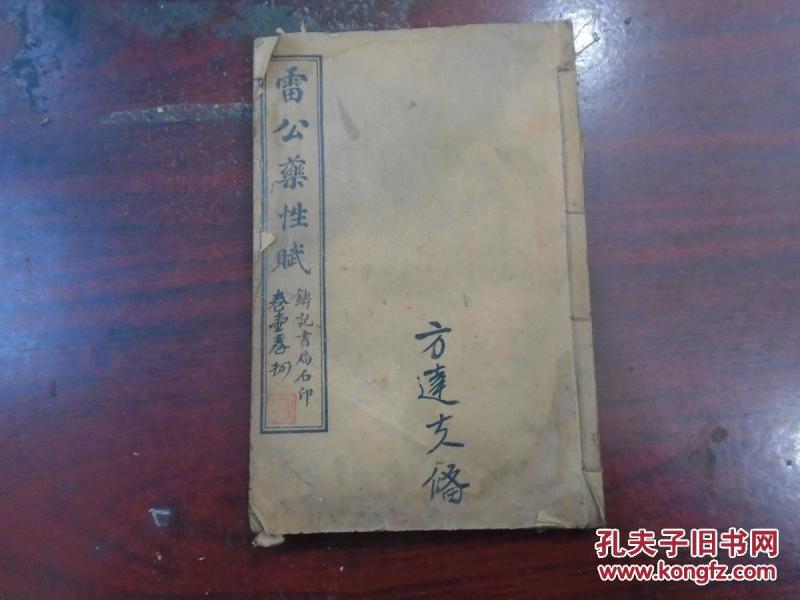 雷公藥性賦
鑄記書局石印
卷壹至捌
方達文俻
孔夫子旧书网
www.kongfz.com